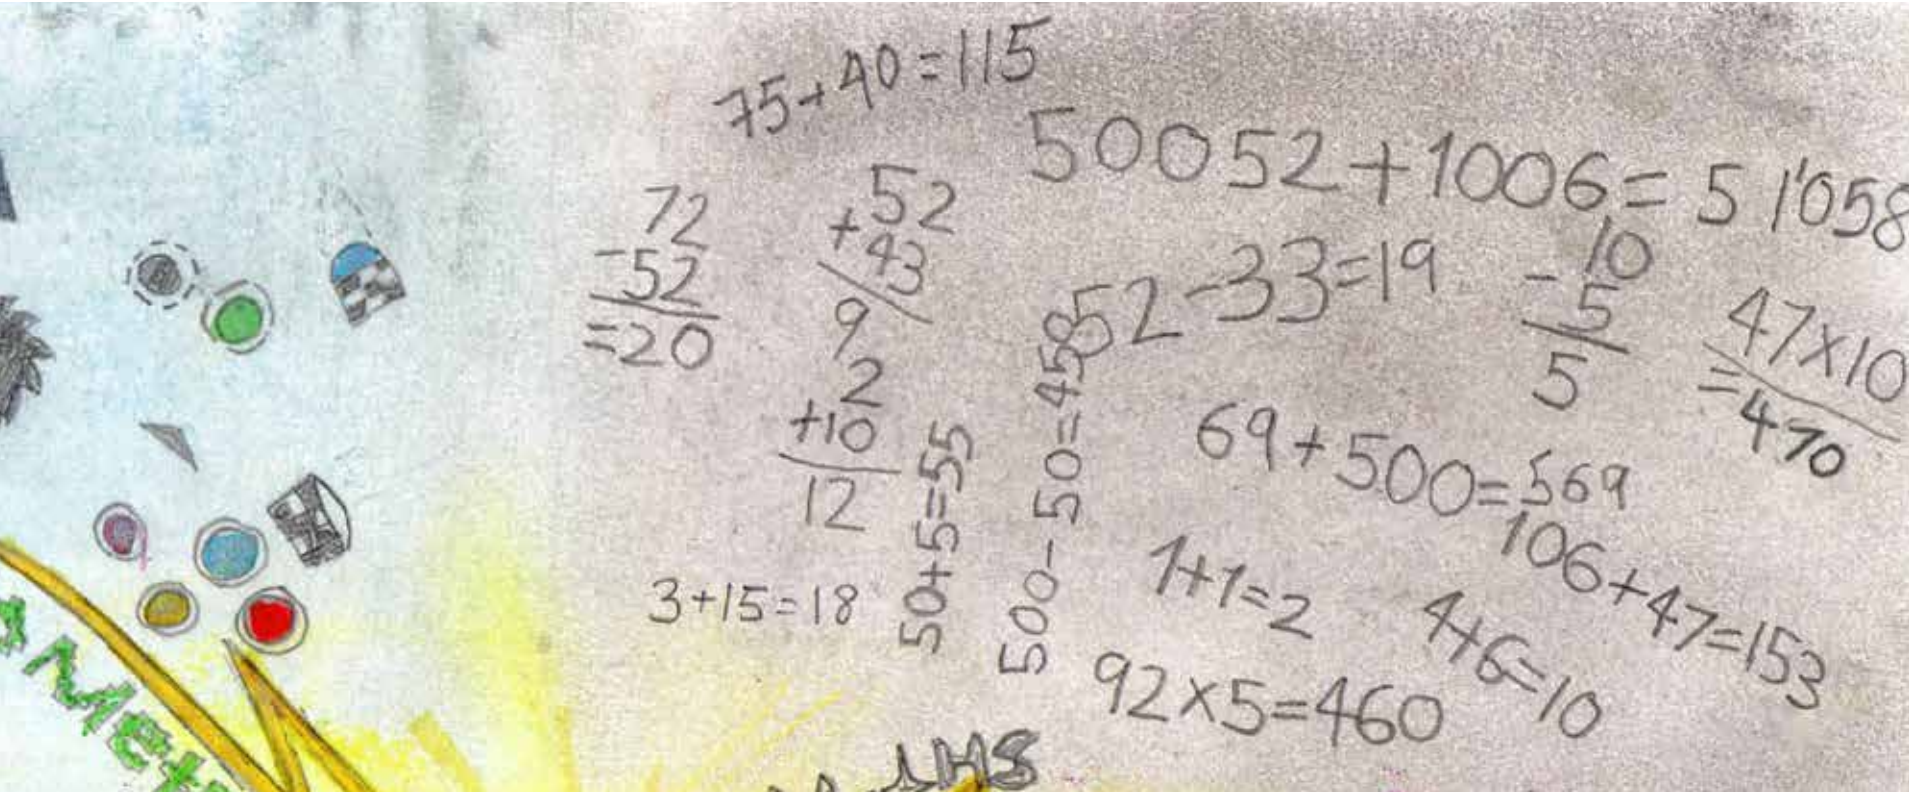 75+40=115
50052+1006=51'058
72
-52
=20
+52
43
9
52-33=19
10
-5
5
47×10
=470
2
+10
12
50+5=55
500-50=458
69+500=569
106+47=153
1+1=2
4+6=10
3+15=18
92×5=460